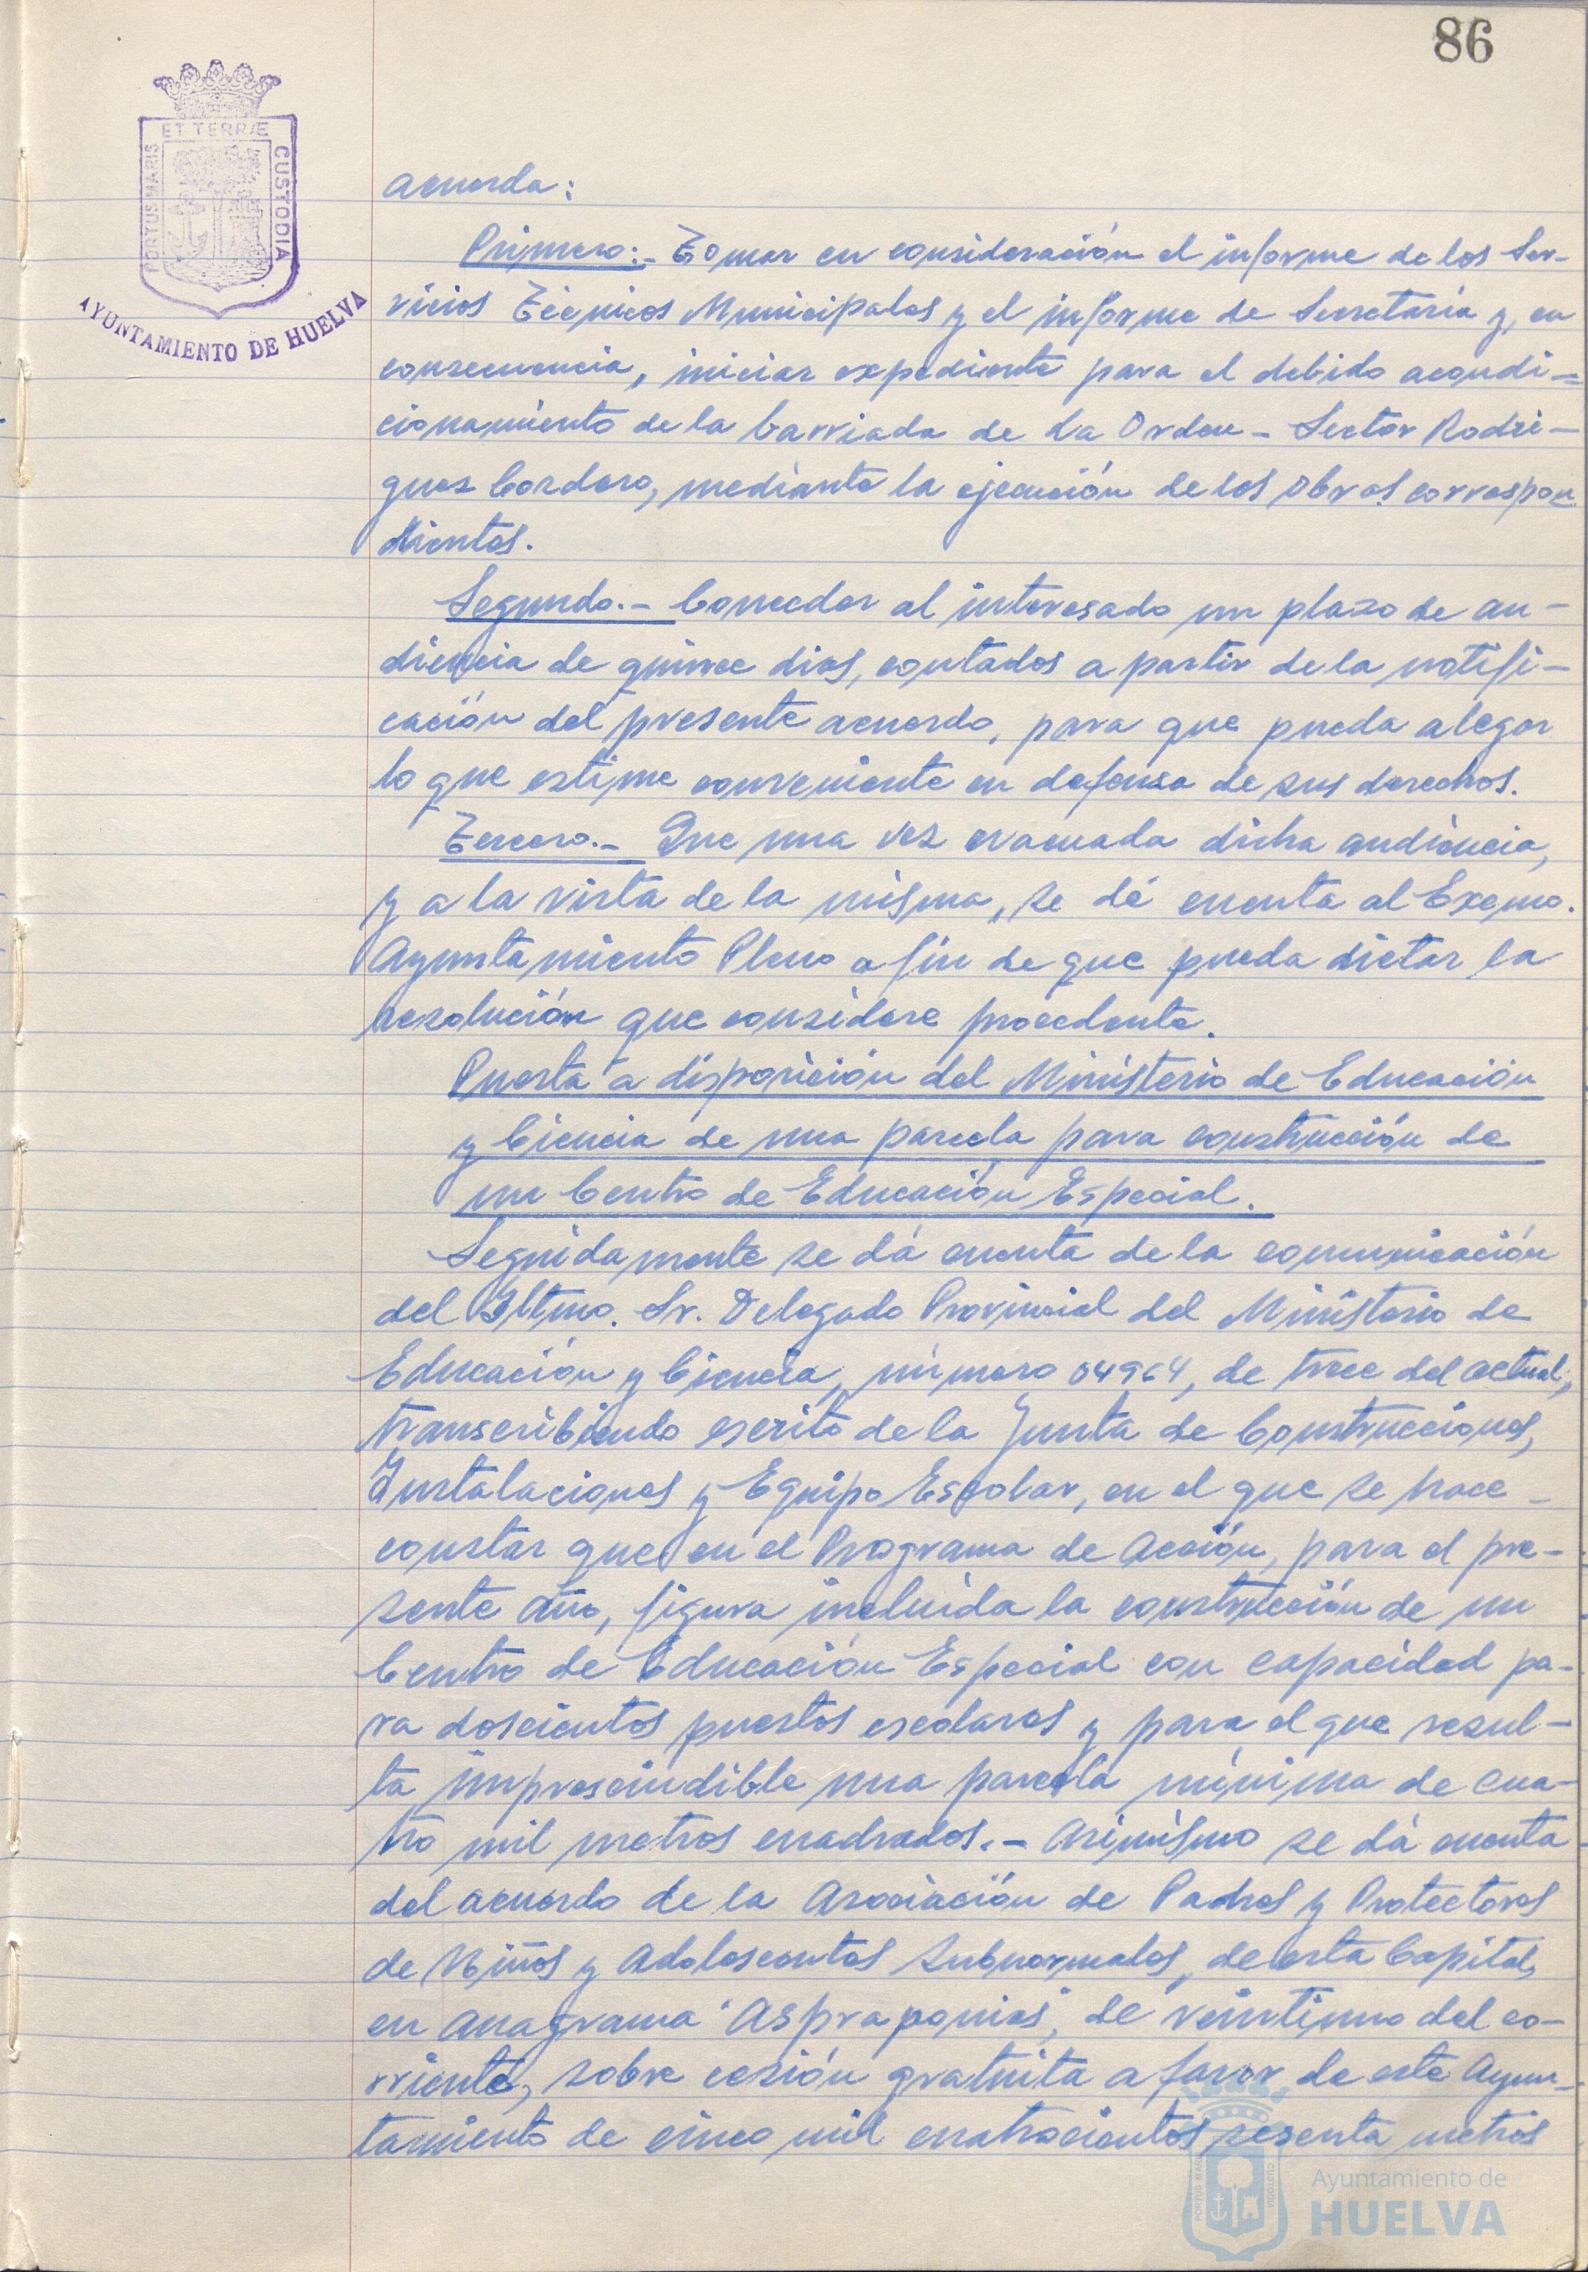 86
ET TERRÆ
PORTUS MARIS
CUSTODIA
AYUNTAMIENTO DE HUELVA
acuerda:
Primero:- Tomar en consideración el informe de los Ser-
vicios Técnicos Municipales y el informe de Secretaría y, en
consecuencia, iniciar expediente para el debido acondi-
cionamiento de la barriada de La Orden - Sector Rodri-
guez Cordero, mediante la ejecución de las obras correspon-
dientes.
Segundo.- Conceder al interesado un plazo de au-
diencia de quince dias, contados a partir de la notifi-
cación del presente acuerdo, para que pueda alegar
lo que estime conveniente en defensa de sus derechos.
Tercero.- Que una vez evacuada dicha audiencia,
y a la vista de la misma, se dé cuenta al Excmo.
Ayuntamiento Pleno a fin de que pueda dictar la
resolución que considere procedente.
Puesta a disposición del Ministerio de Educación
y Ciencia de una parcela para construcción de
un Centro de Educación Especial.
Seguidamente se dá cuenta de la comunicación
del Iltmo. Sr. Delegado Provincial del Ministerio de
Educación y Ciencia, número 04964, de trece del actual,
transcribiendo escrito de la Junta de Construcciones,
Instalaciones y Equipo Escolar, en el que se hace
constar que en el Programa de Acción, para el pre-
sente año, figura incluida la construcción de un
Centro de Educación Especial con capacidad pa-
ra doscientos puestos escolares y para el que resul-
ta imprescindible una parcela mínima de cua-
tro mil metros cuadrados.- Asimismo se dá cuenta
del acuerdo de la Asociación de Padres y Protectores
de Niños y Adolescentes Subnormales, de esta Capital,
en anagrama "Aspraponias", de veintiuno del co-
rriente, sobre cesión gratuita a favor de este Ayun-
tamiento de cinco mil cuatrocientos sesenta metros
Ayuntamiento de
HUELVA